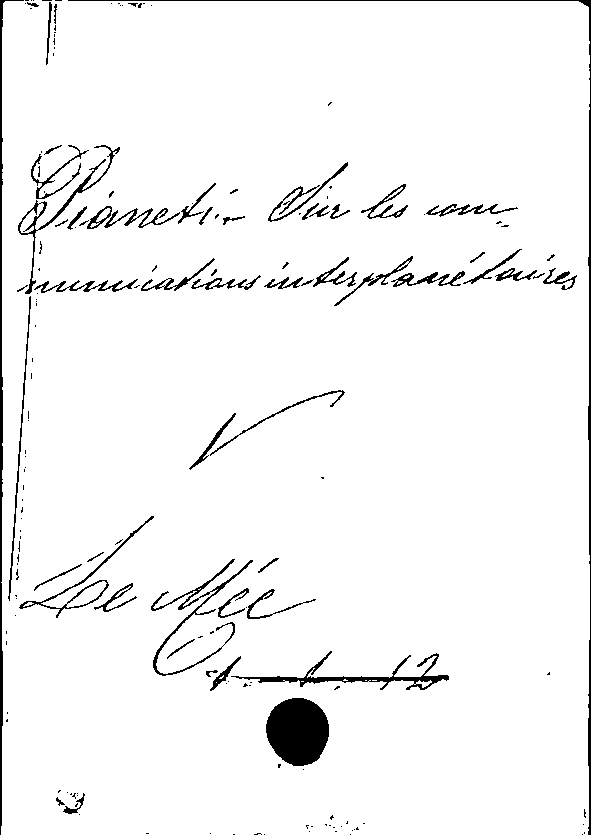 Pianeti.- Sur les com-
munications interplanétaires
Le Mée